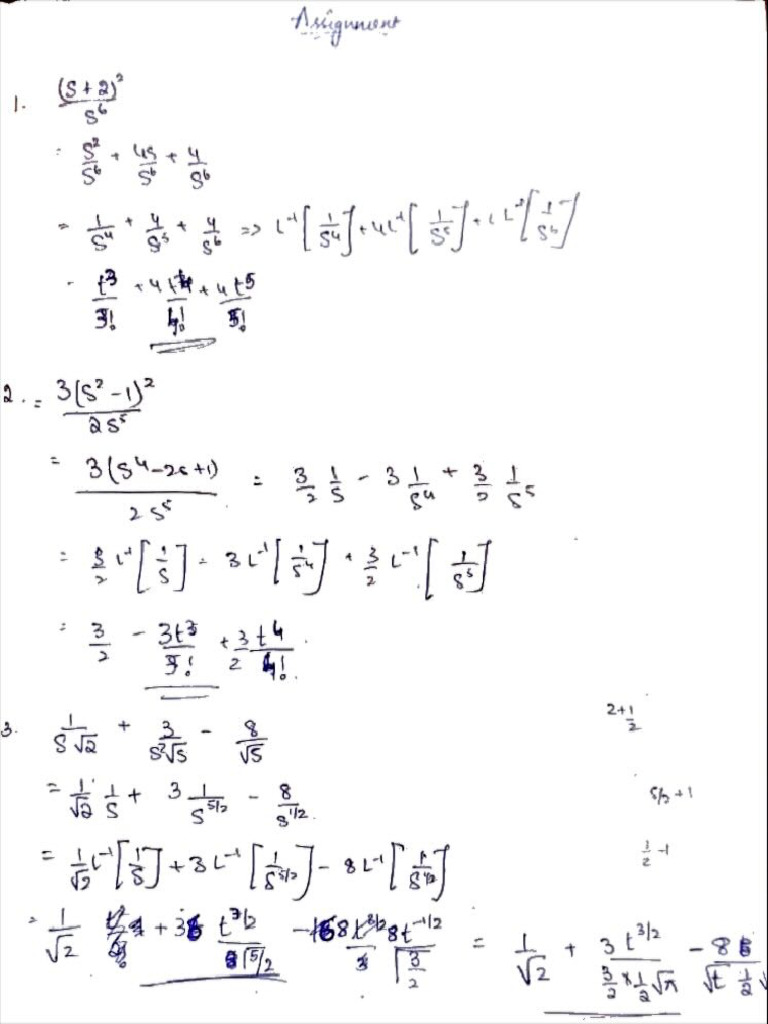 Assignment
1. (S+2)² / S⁶
= S²/S⁶ + 4S/S⁶ + 4/S⁶
= 1/S⁴ + 4/S⁵ + 4/S⁶ => L⁻¹[1/S⁴] + 4L⁻¹[1/S⁵] + L⁻¹[1/S⁶]
= t³/3! + 4t⁴/4! + 4t⁵/5!
2. = 3(S²-1)² / 2S⁵
= 3(S⁴-2s+1) / 2S⁵ = 3/2 1/S - 3 1/S⁴ + 3/2 1/S⁵
= 3/2 L⁻¹[1/S] - 3L⁻¹[1/S⁴] + 3/2 L⁻¹[1/S⁵]
= 3/2 - 3t³/3! + 3/2 t⁴/4!
3. 1/S√2 + 3/S²√S - 8/√S
2+1/2
= 1/√2 1/S + 3 1/S^5/2 - 8/S^1/2
5/2+1
= 1/√2 L⁻¹[1/S] + 3L⁻¹[1/S^5/2] - 8L⁻¹[1/S^1/2]
1/2-1
= 1/√2 + 3 t^3/2 / Γ5/2 - 8t^-1/2 / Γ3/2 = 1/√2 + 3t^3/2 / 3/2 × 1/2 √π - 8 / √t 1/2 √